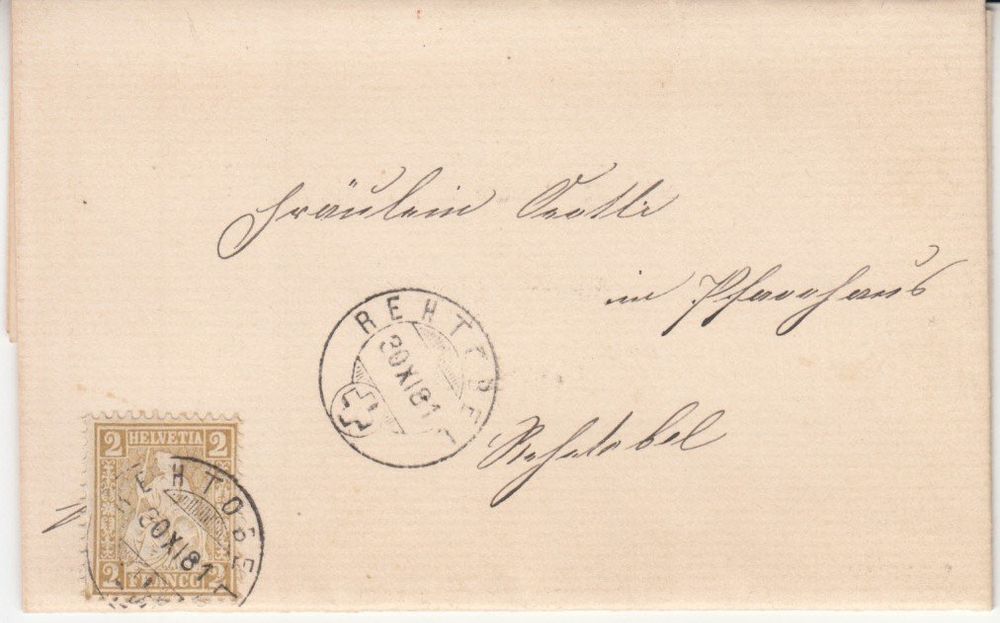 Fräulein
im Pfarrhaus
REHTOBEL
20 XI 81
Rehetobel
2 HELVETIA 2
REHTOBEL
20 XI 81
2 FRANCO 2